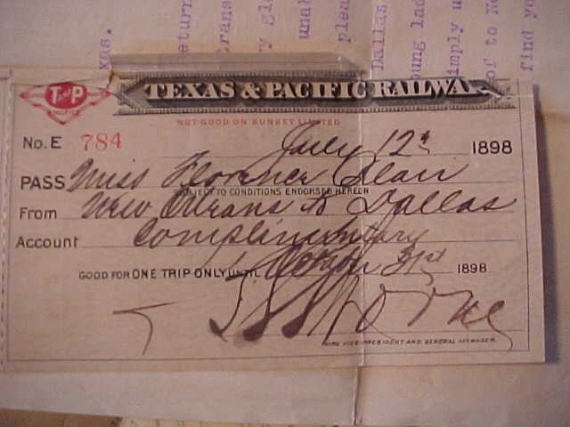 eturn
rans
ry gla
unab
plea
Dallas
oung lad
imply u
or to Ne
find yo
xas.
T and P
PACIFIC
TEXAS & PACIFIC RAILWA
NOT GOOD ON SUNSET LIMITED
No. E 784
July 12th 1898
PASS Miss Florence Blair
SUBJECT TO CONDITIONS ENDORSED HEREON
From New Orleans to Dallas
Account Complimentary
GOOD FOR ONE TRIP ONLY UNTIL October 31st 1898
VICE PRESIDENT AND GENERAL MANAGER.